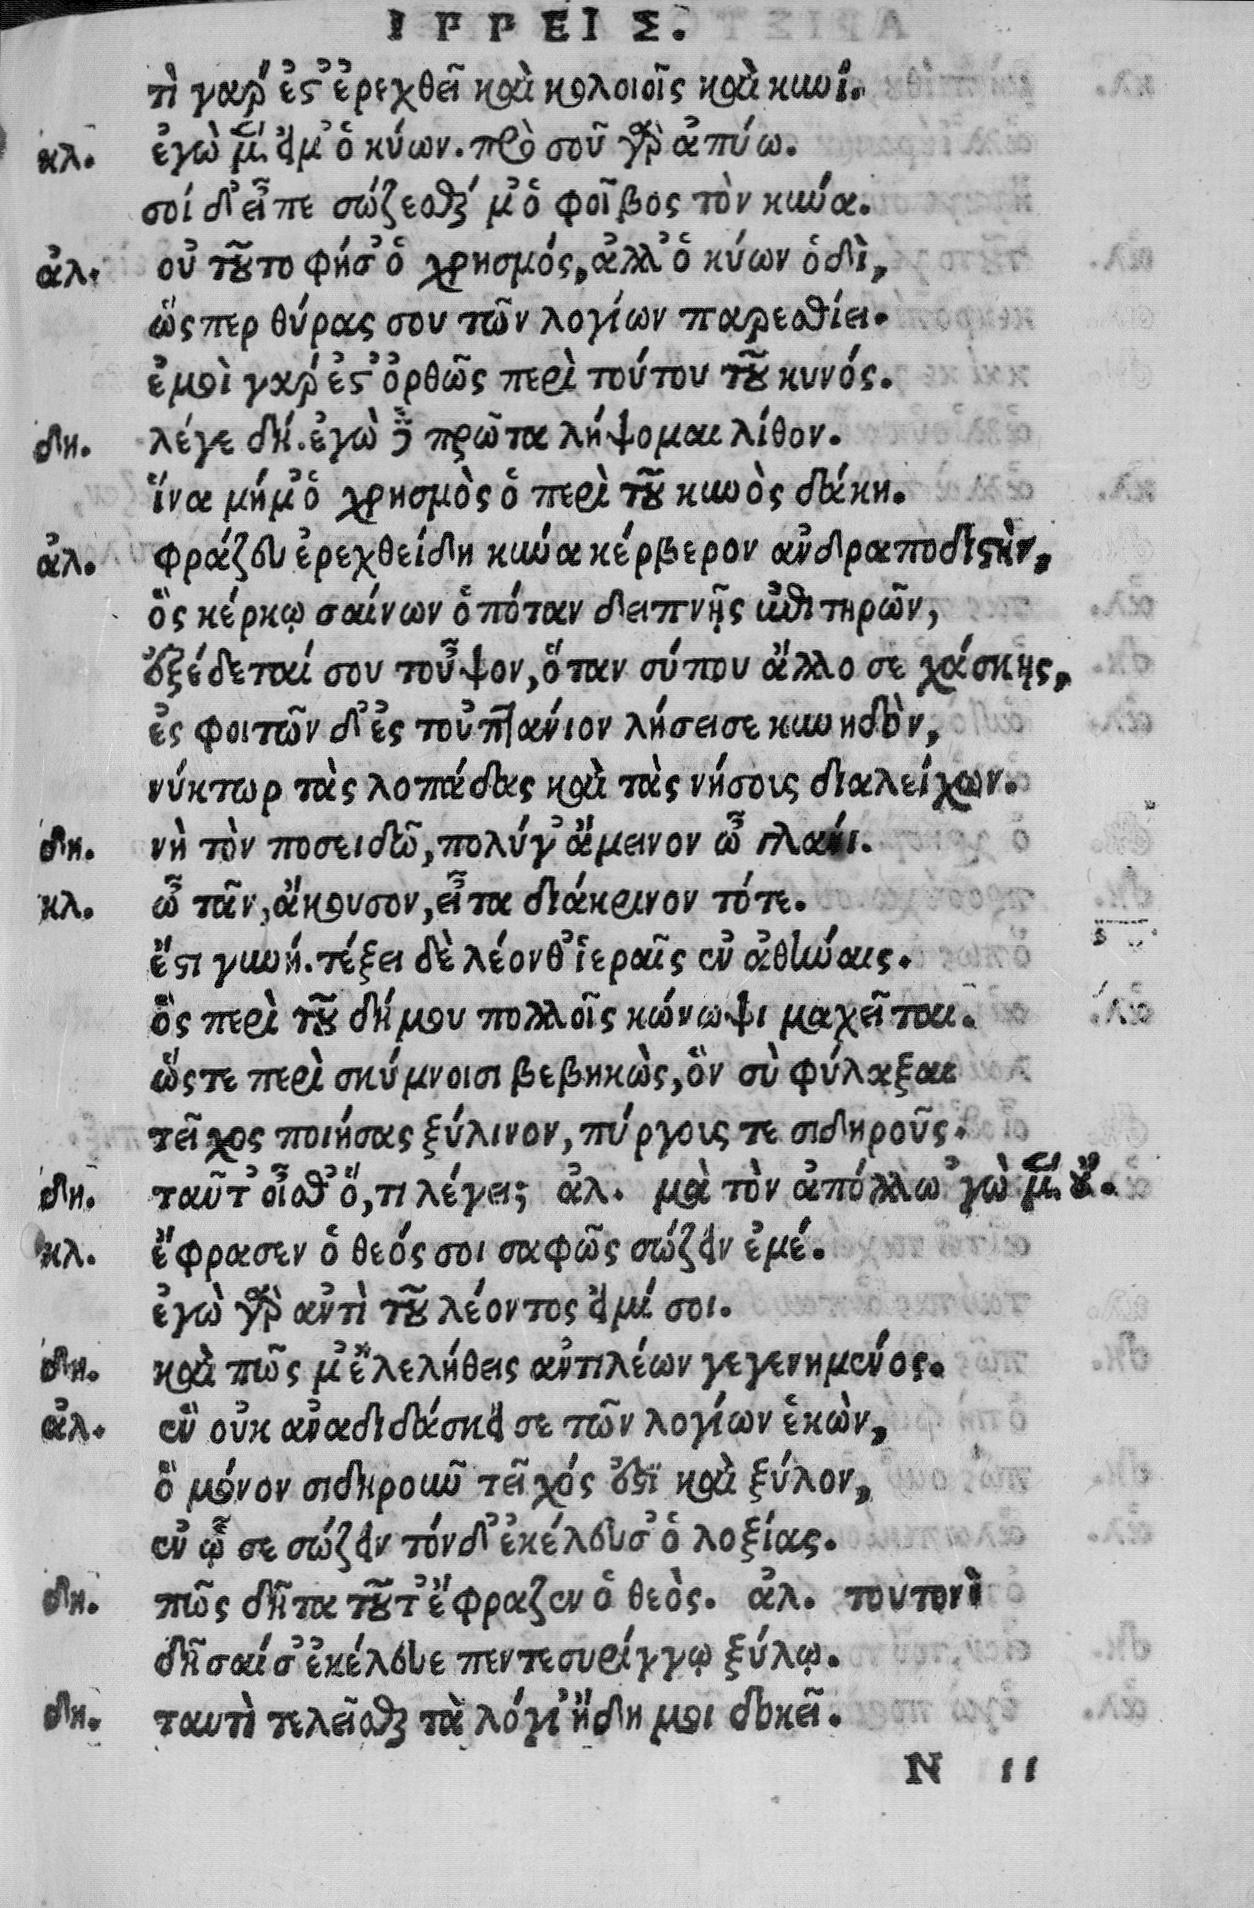 ΙΡΡΕΙΣ.
τί γάρ ἐς ἐρεχθεῖ καὶ κολοιοῖς καὶ κυνί.
κλ. ἐγὼ μέν εἰμ᾽ ὁ κύων. πρὸ σοῦ γὰρ ἀπύω.
σοί δ᾽ εἶπε σώζεσθαί μ᾽ ὁ φοῖβος τὸν κύνα.
ἀλ. οὐ τοῦτο φήσ᾽ ὁ χρησμός, ἀλλ᾽ ὁ κύων ὁδὶ,
ὥς περ θύρας σου τῶν λογίων παρεσθίει.
ἐμοὶ γάρ ἐς ὀρθῶς περὶ τούτου τοῦ κυνός.
δη. λέγε δή. ἐγὼ δὲ πρῶτα λήψομαι λίθον.
ἵνα μή μ᾽ ὁ χρησμὸς ὁ περὶ τοῦ κυνὸς δάκη.
ἀλ. φράζευ ἐρεχθείδη κύνα κέρβερον ἀνδραποδιστὴν,
ὃς κέρκῳ σαίνων ὁπόταν δειπνῇς ἐπιτηρῶν,
ἐξέδεταί σου τοὖψον, ὅταν σύ που ἄλλο σε χάσκῃς,
ἐς φοιτῶν δ᾽ ἐς τοὐπτάνιον λήσει σε κυνηδὸν,
νύκτωρ τὰς λοπάδας καὶ τὰς νήσους διαλείχων.
δη. νὴ τὸν ποσειδῶ, πολύ γ᾽ ἄμεινον ὦ γλάνι.
κλ. ὦ τᾶν, ἄκουσον, εἶτα διάκρινον τότε.
ἔστι γυνή. τέξει δὲ λέονθ᾽ ἱεραῖς ἐν ἀθήναις.
ὃς περὶ τοῦ δήμου πολλοῖς κώνωψι μαχεῖται.
ὥς τε περὶ σκύμνοισι βεβηκὼς, ὃν σὺ φύλαξαι
τεῖχος ποιήσας ξύλινον, πύργους τε σιδηροῦς.
δη. ταῦτ᾽ οἶσθ᾽ ὅ, τι λέγει; ἀλ. μὰ τὸν ἀπόλλω ᾽γὼ μὲν οὔ.
κλ. ἔφρασεν ὁ θεός σοι σαφῶς σώζειν ἐμέ.
ἐγὼ γὰρ ἀντὶ τοῦ λέοντος εἰμί σοι.
δη. καὶ πῶς μ᾽ ἐλελήθεις ἀντιλέων γεγενημένος.
ἀλ. ἓν οὐκ ἀναδιδάσκει σε τῶν λογίων ἑκὼν,
ὃ μόνον σιδηροῦν τεῖχός ἐστι καὶ ξύλον,
ἐν ᾧ σε σώζειν τόνδ᾽ ἐκέλευσ᾽ ὁ λοξίας.
δη. πῶς δῆτα τοῦτ᾽ ἔφραζεν ὁ θεὸς. ἀλ. τουτονὶ
δῆσαί σ᾽ ἐκέλευε πεντεσυρίγγῳ ξύλῳ.
δη. ταυτὶ τελεῖσθαι τὰ λόγι᾽ ἤδη μοι δοκεῖ.
Ν ιι